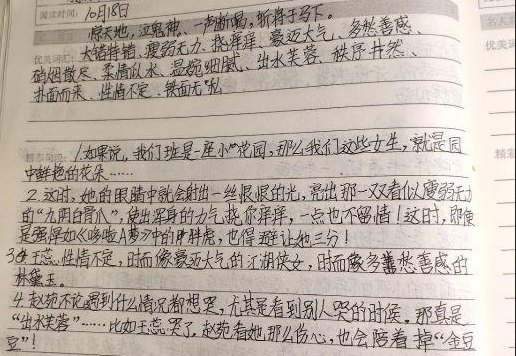 阅读时间: 10月18日
惊天地,泣鬼神、一声断喝,斩将于马下。
优美词汇: 大错特错、瘦弱无力、挠痒痒、豪迈大气、多愁善感、
硝烟散尽、柔情似水、温婉细腻、出水芙蓉、秩序井然、
扑面而来、性情不定、铁面无私
优美
精彩句段: 1.如果说,我们班是一座小花园,那么我们这些女生,就是园
中鲜艳的花朵……
精彩
2.这时,她的眼睛中就会射出一丝狠狠的光,亮出那一双看似瘦弱无力
的“九阴白骨爪”,使出浑身的力气,挠你痒痒,一点也不留情!这时,即使
是强悍如《哆啦A梦》中的胖虎,也得避让她三分!
3.王蕊性情不定,时而像豪迈大气的江湖侠女,时而像多愁善感的
林黛玉。
4.赵苑不论遇到什么情况都想哭,尤其是看到别人哭的时候。那真是
“出水芙蓉”……比如王蕊哭了,赵苑看她那么伤心,也会陪着掉“金豆
豆”!